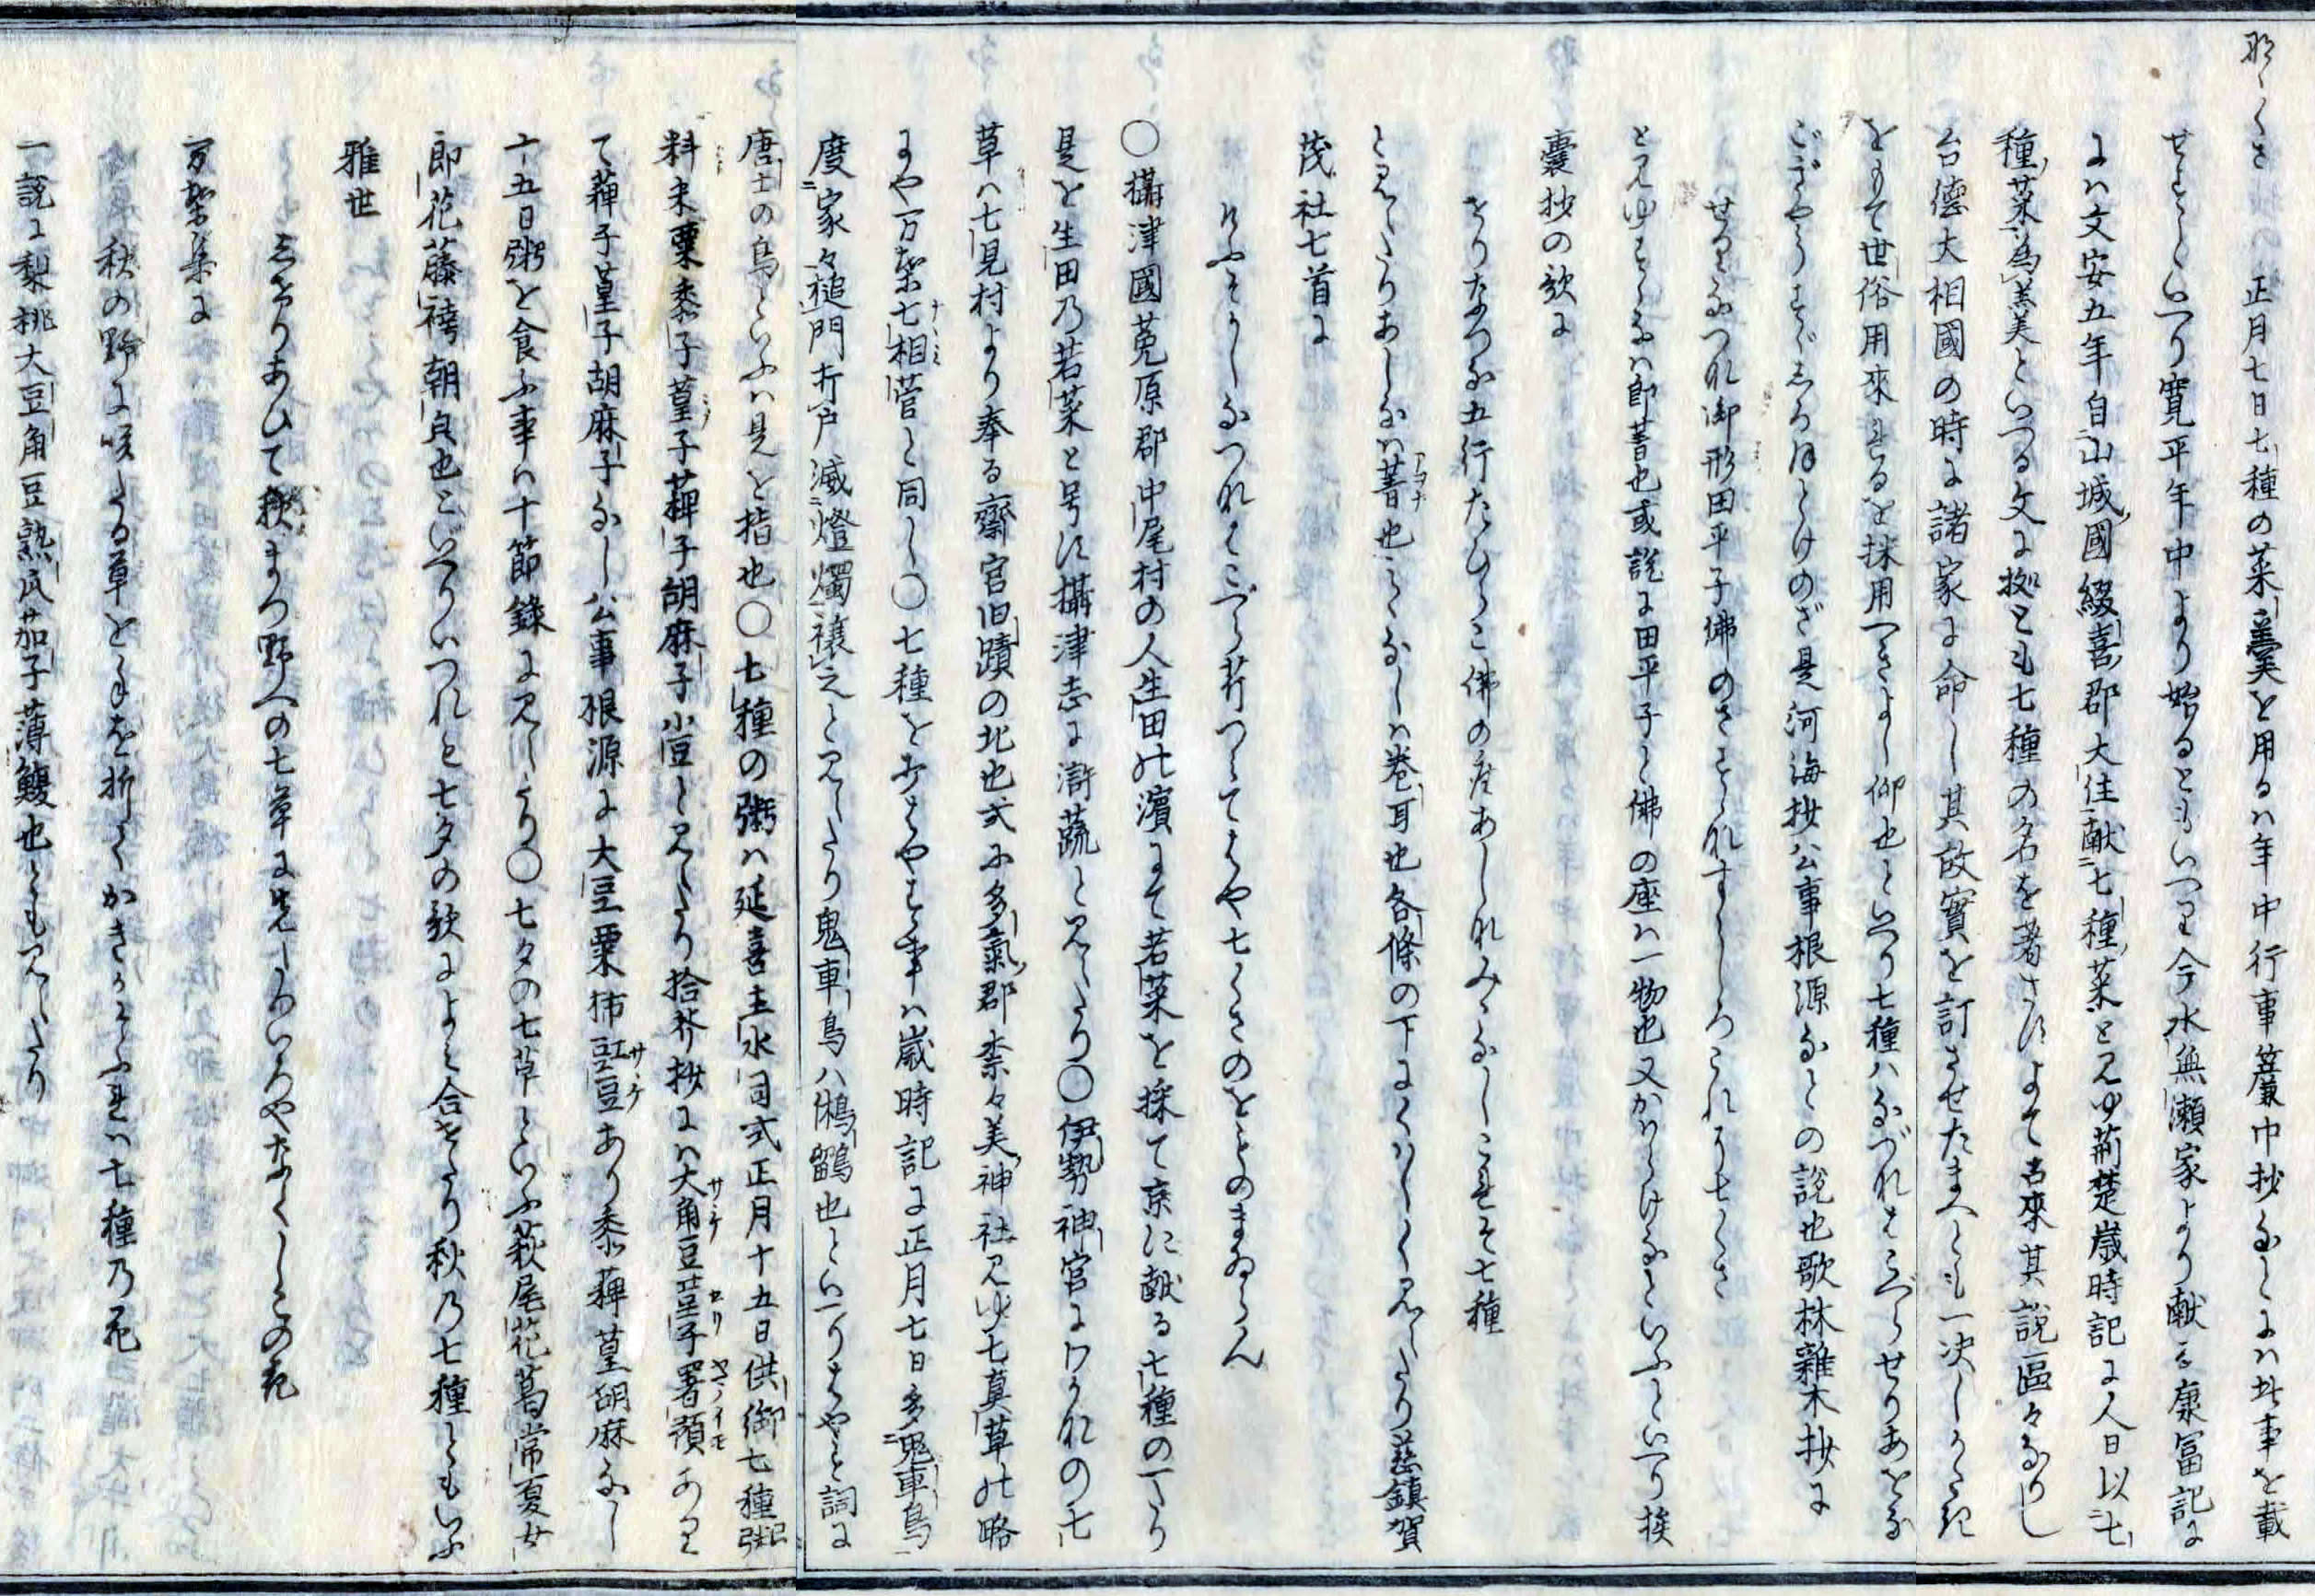 なゝくさ 正月七日七種の菜羹を用るハ年中行事簾中抄なとにハ此事を載
せすといへり寛平年中より始るともいへり今水無瀬家より献る康冨記に
にハ文安五年自山城國綴喜郡大住献ニ七種菜と見ゆ荊楚歳時記に人日以ニ七
種菜為羹美といへる文に拠とも七種の名を著さすよて古來其説區々なりし
台徳大相國の時に諸家に命し其故實を訂させたまへとも一決しかたき
をもて世俗用來れるを採用へきよし仰也といへり七種ハなづなはこべらせりあをな
ごぎやうすゞしろほとけのざ是河海抄公事根源なとの説也歌林雜木抄に
せりなつな御形田平子佛のさすゝなすゝしろこれそ七くさ
と見ゆすゝなハ即菁也或説に田平子と佛の座ハ一物也又かハらけなといふといへり埃
囊抄の歌に
せりなつな五行たひらこ佛の座あしなみゝなしこれそ七種
と見えたりあしなハ菁也みゝなしハ巻耳也各條の下にくハしく見えたり慈鎮賀
茂社七首に
けふそかしなつなはこべら芹つミてはや七くさのをものまゐらん
○攝津國莵原郡中尾村の人生田の濱にて若菜を採て京に献る七種の一なり
是を生田乃若菜と号す攝津志に滸蔬と見えたり○伊勢神宮にわかなの七
草ハ七見村より奉る齋宮旧蹟の北也式に多氣郡柰々美神社見ゆ七莫草の略
にや万葉七相菅と同し○七種をうちはやす事ハ歳時記に正月七日多ニ鬼車鳥
度ニ家々槌門打戸滅ニ燈燭禳之と見えたり鬼車鳥ハ鵂鶹也といへりはやし詞に
唐土の鳥といふハ是を指也○七種の粥ハ延喜主水司式正月十五日供御七種粥
料米粟黍子葟子䅟子胡麻子小豆と見えたり拾芥抄にハ大角豆菫子署預あり
て䅟子葟子胡麻子なし公事根源に大豆粟柿豇豆あり黍䅟葟胡麻なし
十五日粥を食ふ事ハ十節錄に見えたり○七夕の七草といふ萩尾花葛常夏女
郎花藤袴朝貌也といへりいつれも七夕の歌によみ合せたり秋乃七種ともいふ
雅世
えそありあひて秋まつ野への七草に先しるいろやなてしこの花
万葉集に
秋の野に咲たる草を手を折てかきかそふれハ七種乃花
一説に梨桃大豆角豆熟瓜茄子薄鰒也とも見えたり